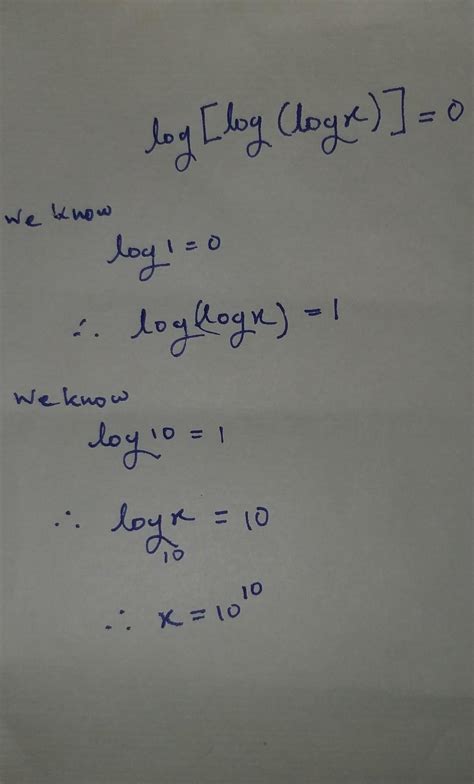 log[log(logx)] = 0
We know
log 1 = 0
∴ log(logx) = 1
We know
log 10 = 1
∴ log₁₀x = 10
∴ x = 10¹⁰